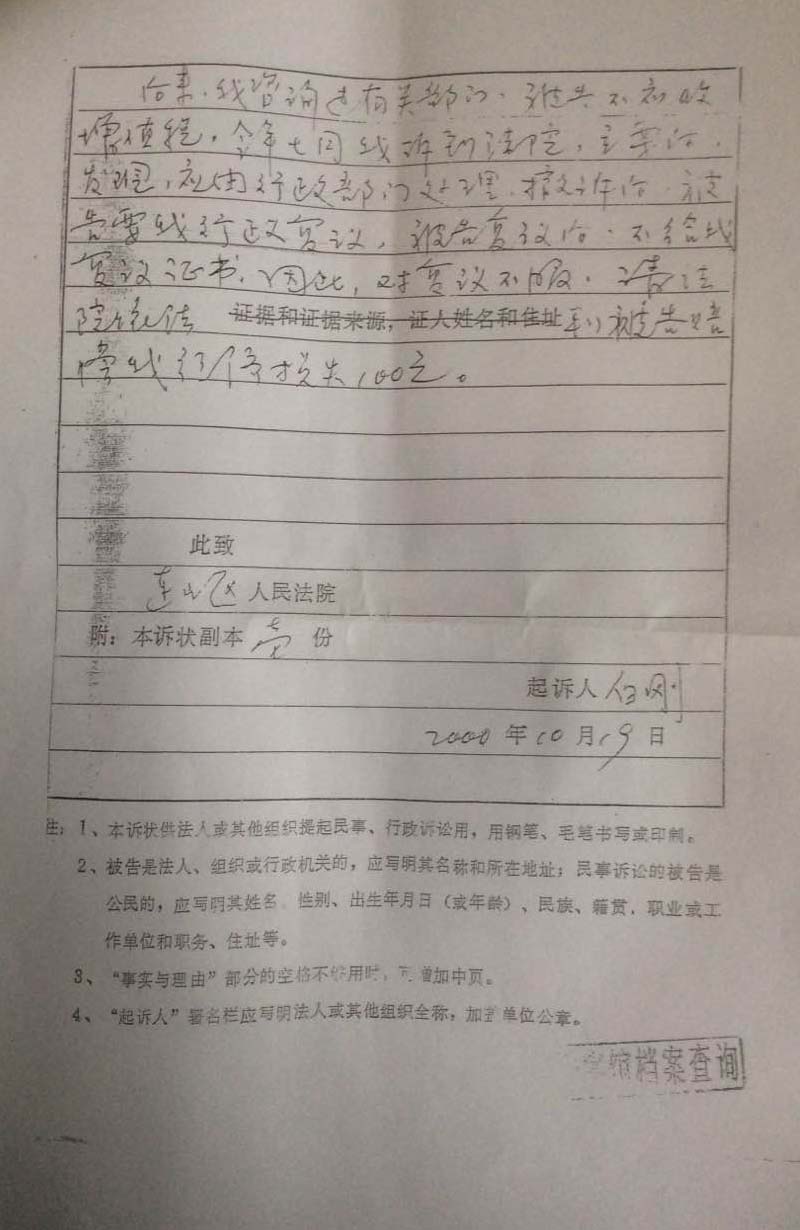 后来,我咨询过有关部门,被告不应收
增值税,今年七月我诉到法院,立案后,
发现,应由行政部门处理,撤诉后,被
告要我行政复议,被告复议后,不给我
复议证书,因此,对复议不服,请法
院依法 证据和证据来源,证人姓名和住址 判被告赔
偿我经济损失100元。
此致
人民法院
附:本诉状副本壹份
起诉人
2000年10月19日
注:1、本诉状供法人或其他组织提起民事、行政诉讼用,用钢笔、毛笔书写或印制。
2、被告是法人、组织或行政机关的,应写明其名称和所在地址;民事诉讼的被告是
公民的,应写明其姓名、性别、出生年月日(或年龄)、民族、籍贯,职业或工
作单位和职务、住址等。
3、“事实与理由”部分的空格不够用时,可增加中页。
4、“起诉人”署名栏应写明法人或其他组织全称,加盖单位公章。
档案查询